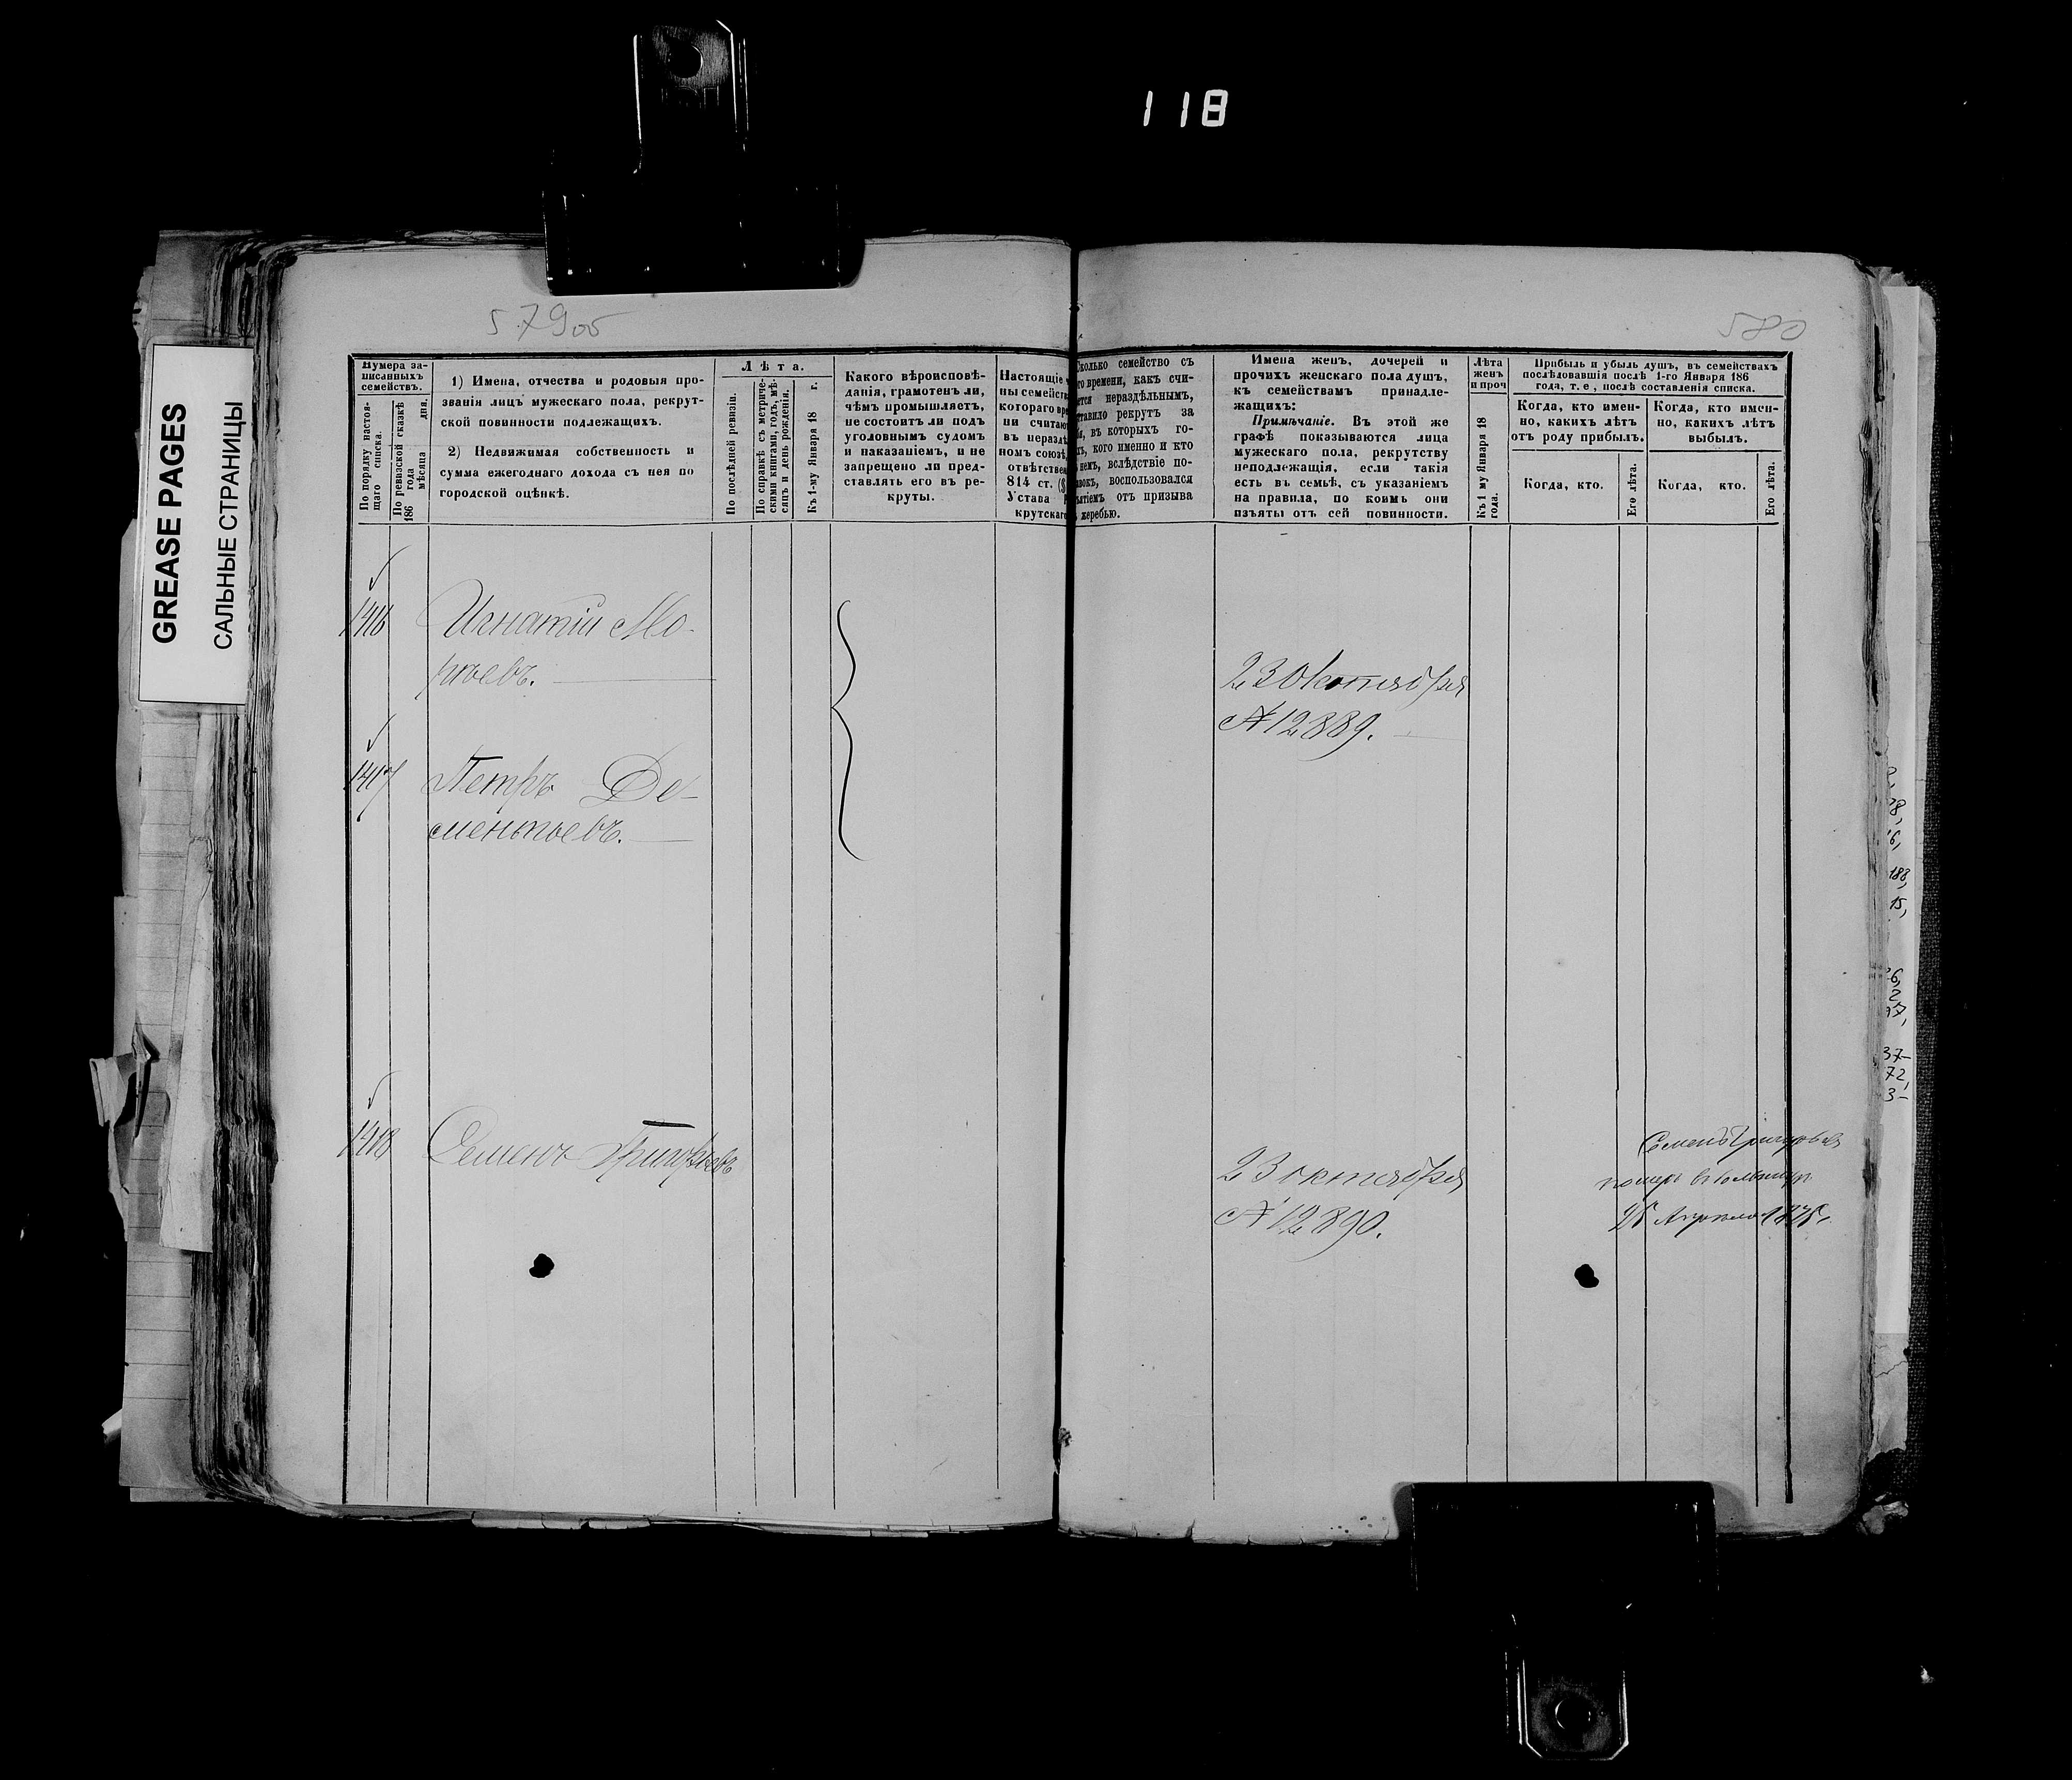 118
GREASE PAGES
САЛЬНЫЕ СТРАНИЦЫ
579об
580
Нумера за-
писанныхъ
семействъ.
По порядку настоя-
щаго списка.
По ревизской сказкѣ
186 года
мѣсяца дня.
1) Имена, отчества и родовыя про-
званія лицъ мужескаго пола, рекрут-
ской повинности подлежащихъ.
2) Недвижимая собственность и
сумма ежегоднаго дохода съ нея по
городской оцѣнкѣ.
Лѣта.
По послѣдней ревизіи.
По справкѣ съ метриче-
скими книгами, годъ, мѣ-
сяцъ и день рожденія.
Къ 1-му Января 18 г.
Какого вѣроисповѣ-
данія, грамотенъ ли,
чѣмъ промышляетъ,
не состоитъ ли подъ
уголовнымъ судомъ
и наказаніемъ, и не
запрещено ли пред-
ставлять его въ ре-
круты.
Настоящіе
ны семейств
котораго вре
ни считаю
въ нераздѣ
номъ союзѣ,
отвѣтствен
814 ст. (§
Устава
крутскаго
Сколько семейство съ
го времени, какъ счи-
ется нераздѣльнымъ,
ставило рекрутъ за
въ которыхъ го-
хъ, кого именно и кто
немъ, вслѣдствіе по-
авокъ, воспользовался
ятіемъ отъ призыва
жеребью.
Имена женъ, дочерей и
прочихъ женскаго пола душъ,
къ семействамъ принадле-
жащихъ:
Примѣчаніе. Въ этой же
графѣ показываются лица
мужескаго пола, рекрутству
неподлежащія, если такія
есть въ семьѣ, съ указаніемъ
на правила, по коимъ они
изъяты отъ сей повинности.
Лѣта
женъ
и проч
Къ 1 му Января 18
года.
Прибыль и убыль душъ, въ семействахъ
послѣдовавшія послѣ 1-го Января 186
года, т. е, послѣ составленія списка.
Когда, кто имен-
но, какихъ лѣтъ
отъ роду прибылъ.
Когда, кто имен-
но, какихъ лѣтъ
выбылъ.
Когда, кто.
Его лѣта.
Когда, кто.
Его лѣта.
1416
Игнатій Мо-
рьевъ.
23 Октября
№ 12889.
1417
Петръ Де-
ментьевъ.
1418
Семенъ Григорьевъ
23 октября
№ 12890.
Семенъ Григорьевъ
померъ въ больницѣ
25 Апрѣля 1875.
188,
15,
37-
72,
3-